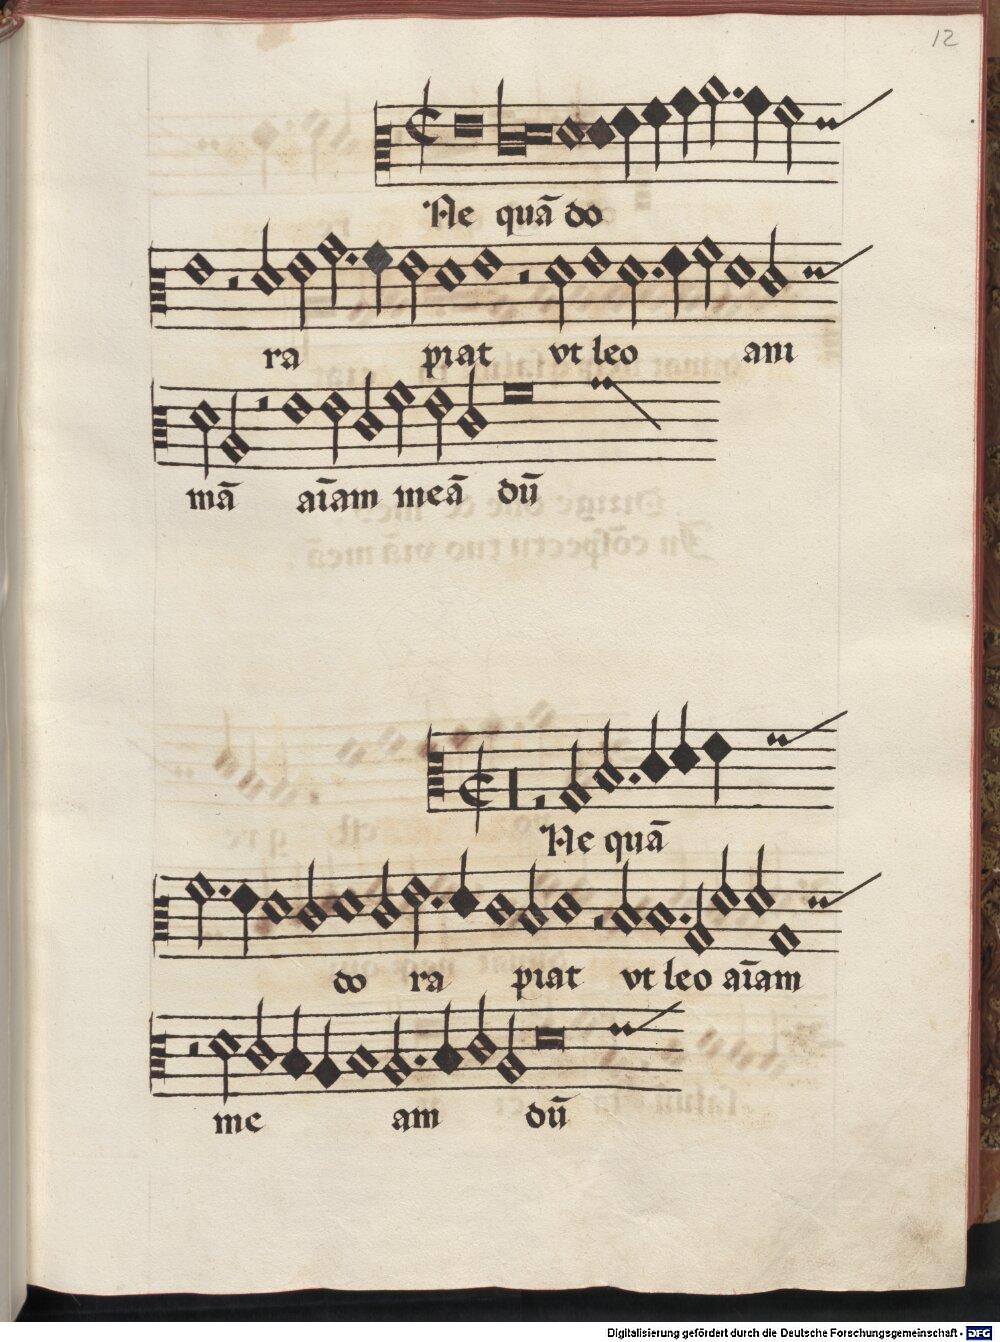 12
Ne quā do
ra piat vt leo ani
mā aīam meā dū
Ne quā
do ra piat vt leo aīam
me am dū
Digitalisierung gefördert durch die Deutsche Forschungsgemeinschaft - DFG